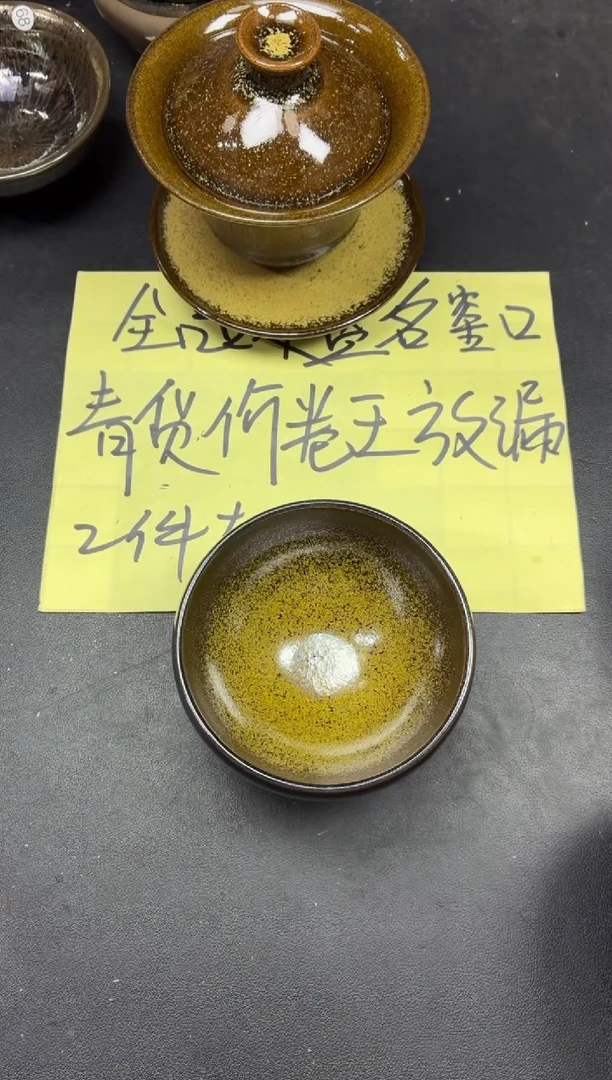 全 名窑口
青货价卷王放漏
2件
68